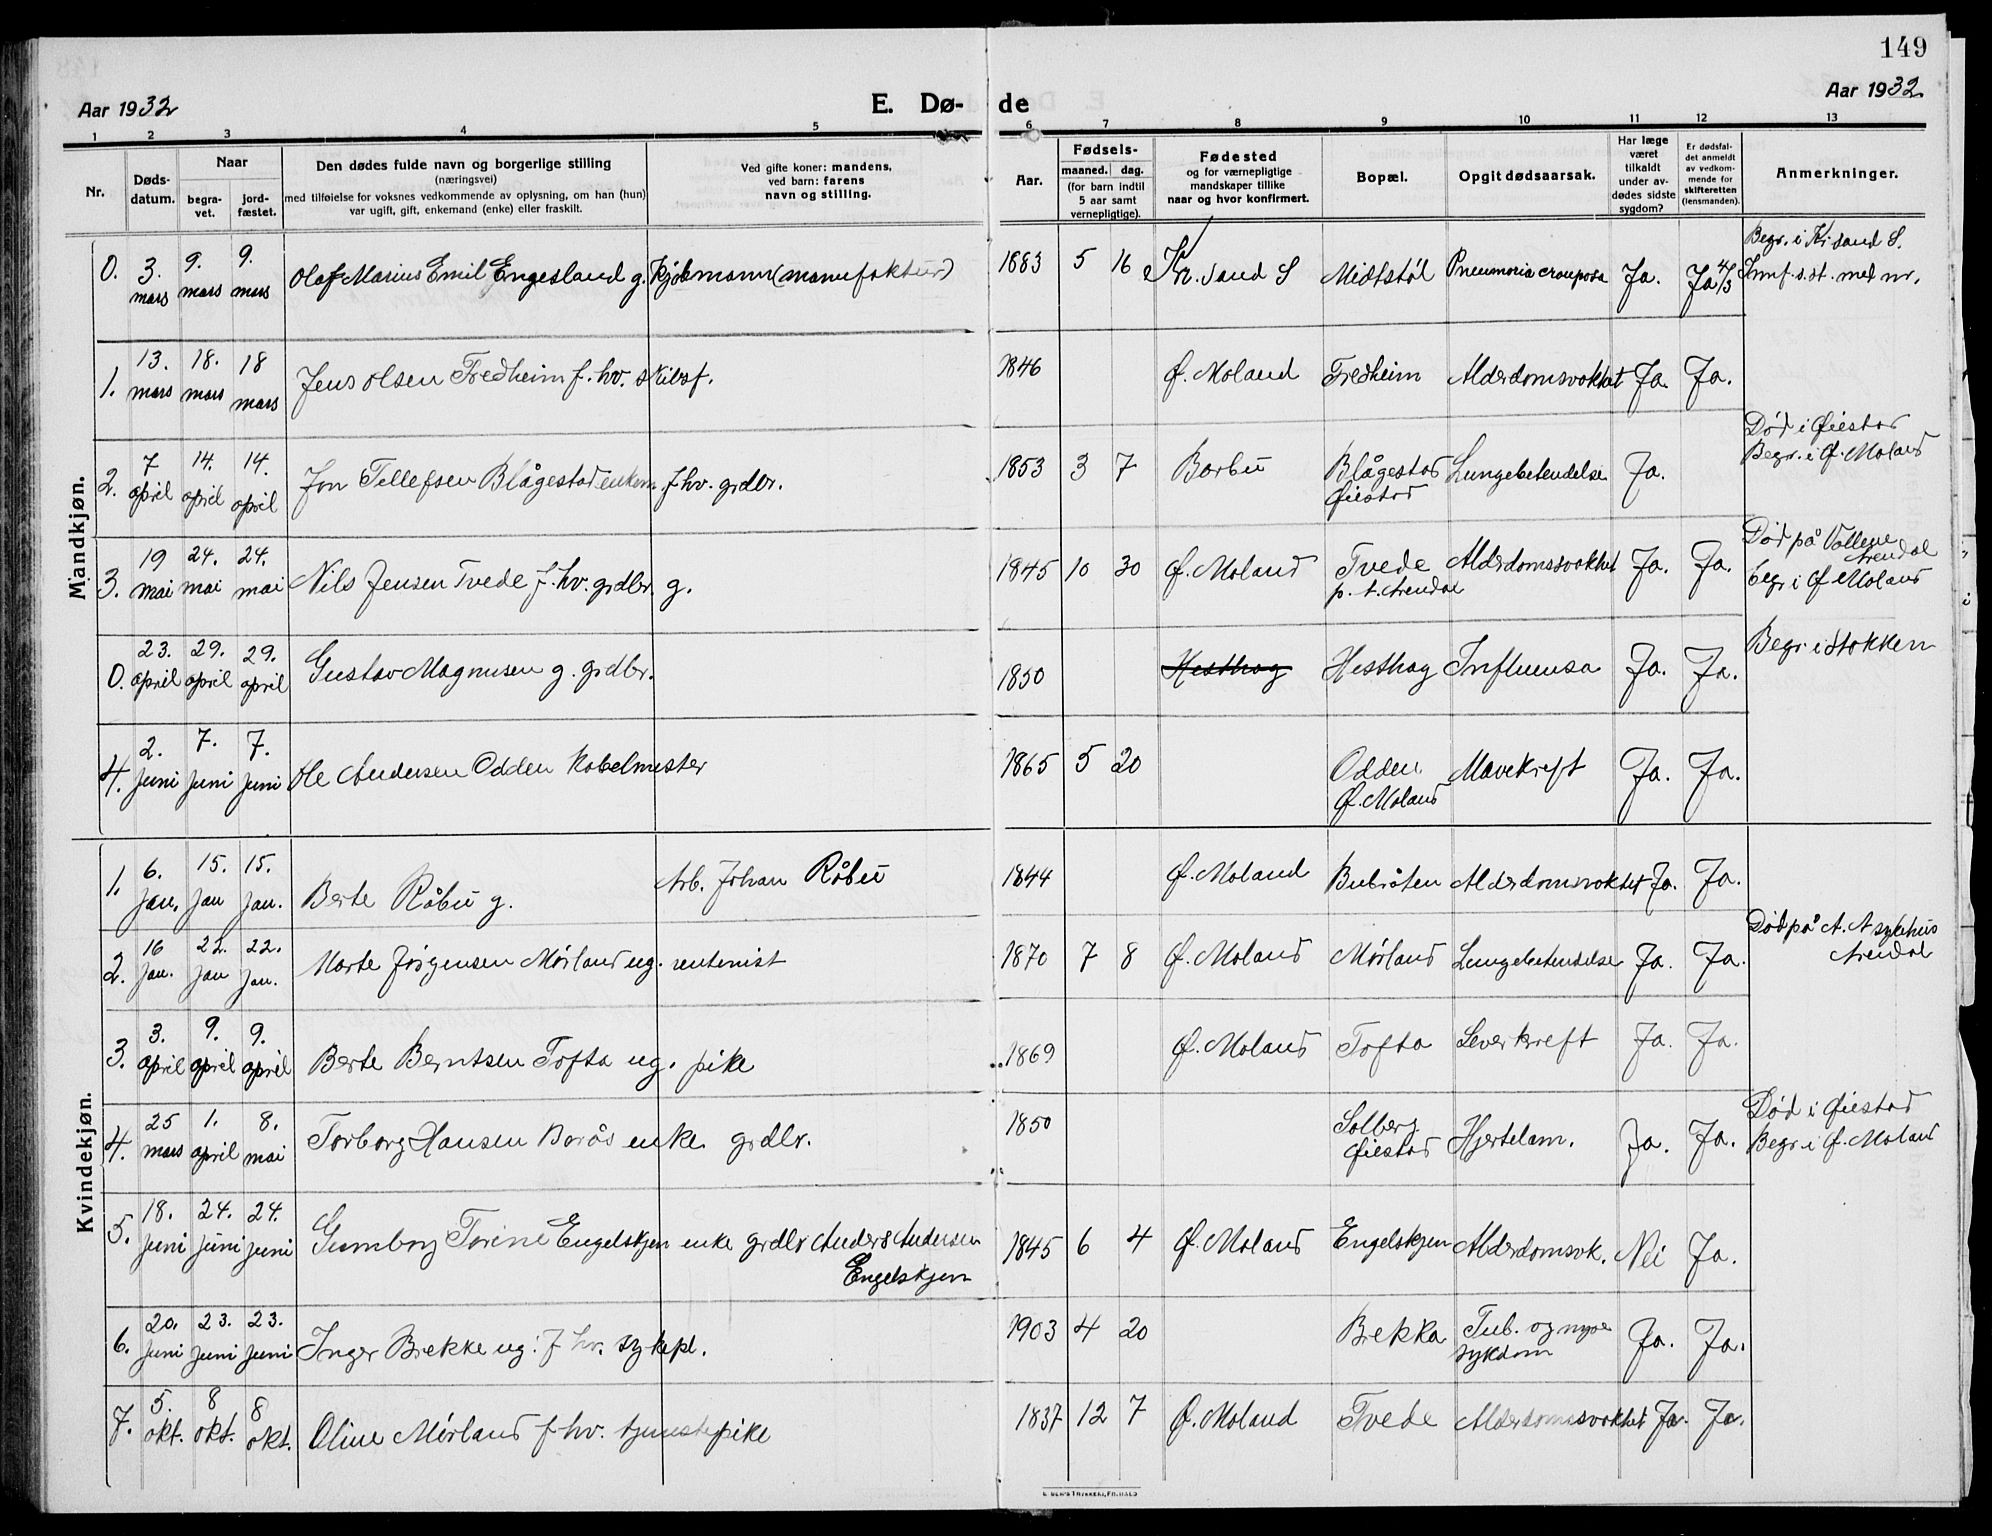 149
Aar 1932
E. Dø- de
Aar 1932
1 2 3 4 5 6 7 8 9 10 11 12 13
Nr.
Døds-
datum.
Naar
begra-
vet.
jord-
fæstet.
Den dødes fulde navn og borgerlige stilling
(næringsvei)
med tilføielse for voksnes vedkommende av oplysning, om han (hun)
var ugift, gift, enkemand (enke) eller fraskilt.
Ved gifte koner: mandens,
ved barn: farens
navn og stilling.
Aar.
Fødsels-
maaned. dag.
(for barn indtil
5 aar samt
vernepligtige).
Fødested
og for værnepligtige
mandskaper tillike
naar og hvor konfirmert.
Bopæl.
Opgit dødsaarsak.
Har læge
været
tilkaldt
under av-
dødes sidste
sygdom?
Er dødsfal-
det anmeldt
av vedkom-
mende for
skifteretten
(lensmanden).
Anmerkninger.
Mandkjøn.
0. 3. mars 9. mars 9. mars Olaf Marius Emil Engesland g. kjøbmann (manufaktur) 1883 5 16 Kr. sand S Midtstøl Pneumonia crouposa Ja. Ja 4/3 Begr. i Kr. sand S.
Innf. s. st. med nr.
1. 13. mars 18. mars 18 mars Jens Olsen Fredheim f. hv. skibsf. 1846 Ø. Moland Fredheim Alderdomsvakhet Ja. Ja.
2. 7 april 14. april 14. april Jon Tellefsen Blågestad enkem. f. hv. grdbr. 1853 3 7 Barbu Blågestad
Øiestad Lungebetendelse Ja. Død i Øiestad
Begr. i Ø. Moland
3. 19 mai 24. mai 24. mai Nils Jensen Tvede f. hv. grdbr. g. 1845 10 30 Ø. Moland Tvede
p. t. Arendal Alderdomssvakhet Ja. Ja. Død på Vollene
Arendal
begr i Ø Moland
0. 23. april 29. april 29. april Gustav Magnusen g. grdbr. 1850 Hesthag Hesthag Influensa Ja. Ja. Begr. i Stokken
4. 2. juni 7. juni 7. juni Ole Andersen Odden kabelmester 1865 5 20 Odden
Ø. Moland Mavekreft Ja. Ja.
Kvindekjøn.
1. 6. jan. 15. jan 15. jan. Berte Råbu g. Arb. Johan Råbu 1844 Ø. Moland Bubråten Alderdomsvakhet Ja. Ja.
2. 16 jan. 22. jan 22. jan. Marte Jørgensen Mørland ug. rentenist 1870 7 8 Ø. Moland Mørland Lungebetendelse Ja. Ja. Død på A. A sykehus
Arendal
3. 3. april 9. april 9. april Berte Berntsen Tofta ug. pike 1869 Ø. Moland Tofta Leverkreft Ja. Ja.
4. 25 mars 1. april 8. mai Torborg Hansen Borås enke grdbr. 1850 Solberg
Øiestad Hjertelam. Ja. Ja. Død i Øiestad
Begr. i Ø. Moland
5. 18. juni 24. juni 24. juni Gunnborg Torine Engelskjen enke grdbr Anders Andersen
Engelskjen 1845 6 4 Ø. Moland Engelskjen Alderdomsvk. Nei Ja.
6. 20. juni 23. juni 23. juni Inger Brekke ug. f. hv. sykepl. 1903 4 20 Brekka Tub. og nyre
sykdom Ja. Ja.
7. 5. okt. 8 okt. 8 okt. Oline Mørland f. hv. tjenestepike 1837 12 7 Ø. Moland Tvede Alderdomssvakhet Ja. Ja.